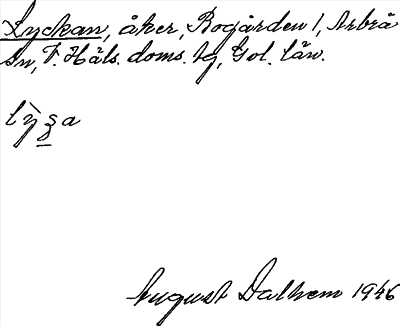 Lyckan, åker, Bogården 1, Arbrå
sn, N. Häls. doms. tg, Gvl. län.
lỳʒa
August Dalhem 1946